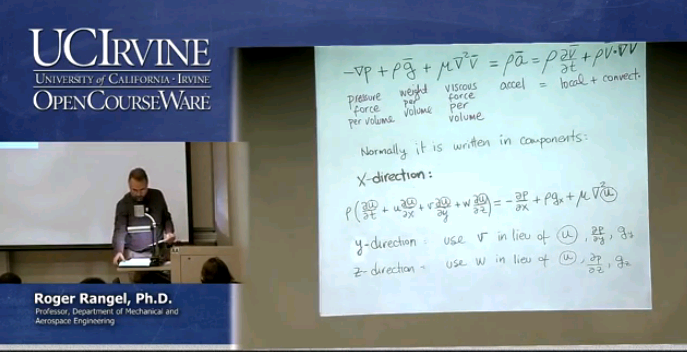 UCIRVINE
UNIVERSITY of CALIFORNIA · IRVINE
OPENCOURSEWARE
-∇p + ρḡ + μ∇²v̄ = ρā = ρ ∂v̄/∂t + ρv̄·∇v̄
pressure force per volume weight per volume viscous force per volume accel = local + convect.
Normally it is written in components:
X-direction:
ρ(∂u/∂t + u ∂u/∂x + v ∂u/∂y + w ∂u/∂z) = -∂p/∂x + ρgx + μ∇²u
y-direction: use v in lieu of u, ∂p/∂y, gy
z-direction = use w in lieu of u, ∂p/∂z, gz
Roger Rangel, Ph.D.
Professor, Department of Mechanical and
Aerospace Engineering